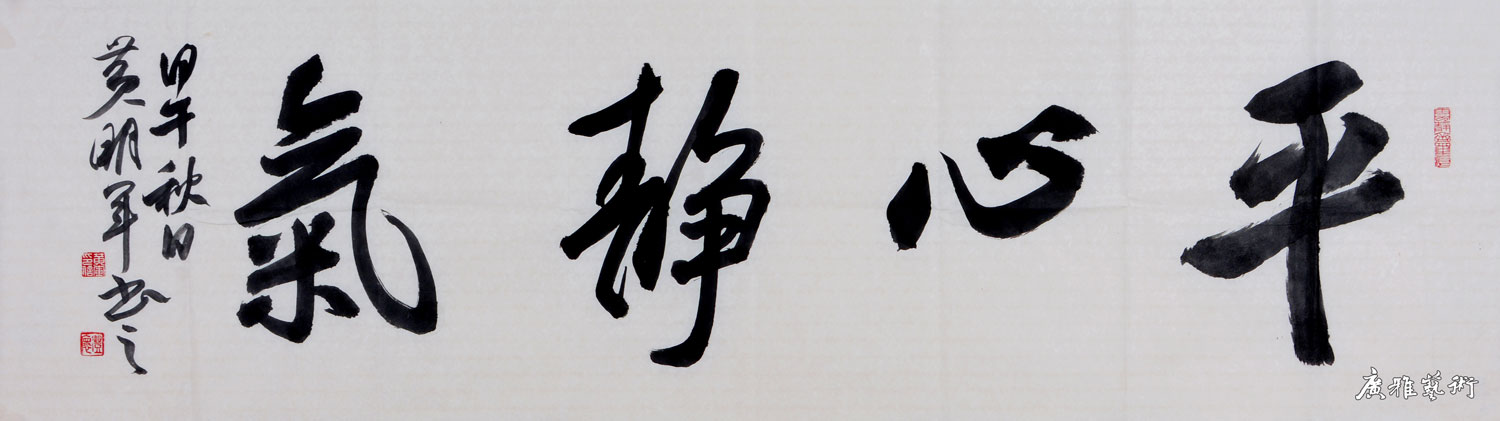 平心静氣
甲午秋日
黄明軍书之
廣雅藝術